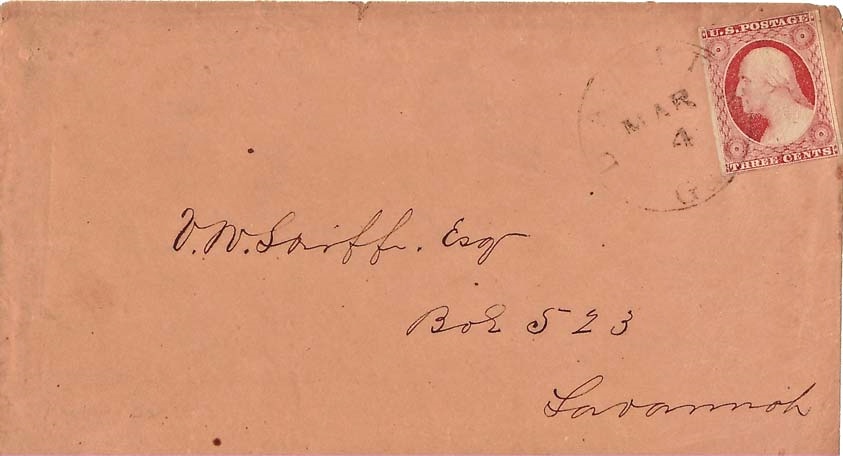 U.S. POSTAGE
THREE CENTS
MAR
4
V. W. Skiff. Esq
Box 523
Savannah